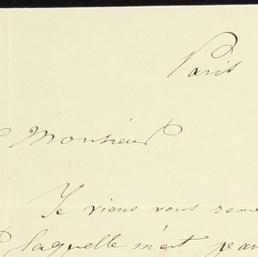 Paris
Monsieur
Je viens vous reme
laquelle m'est